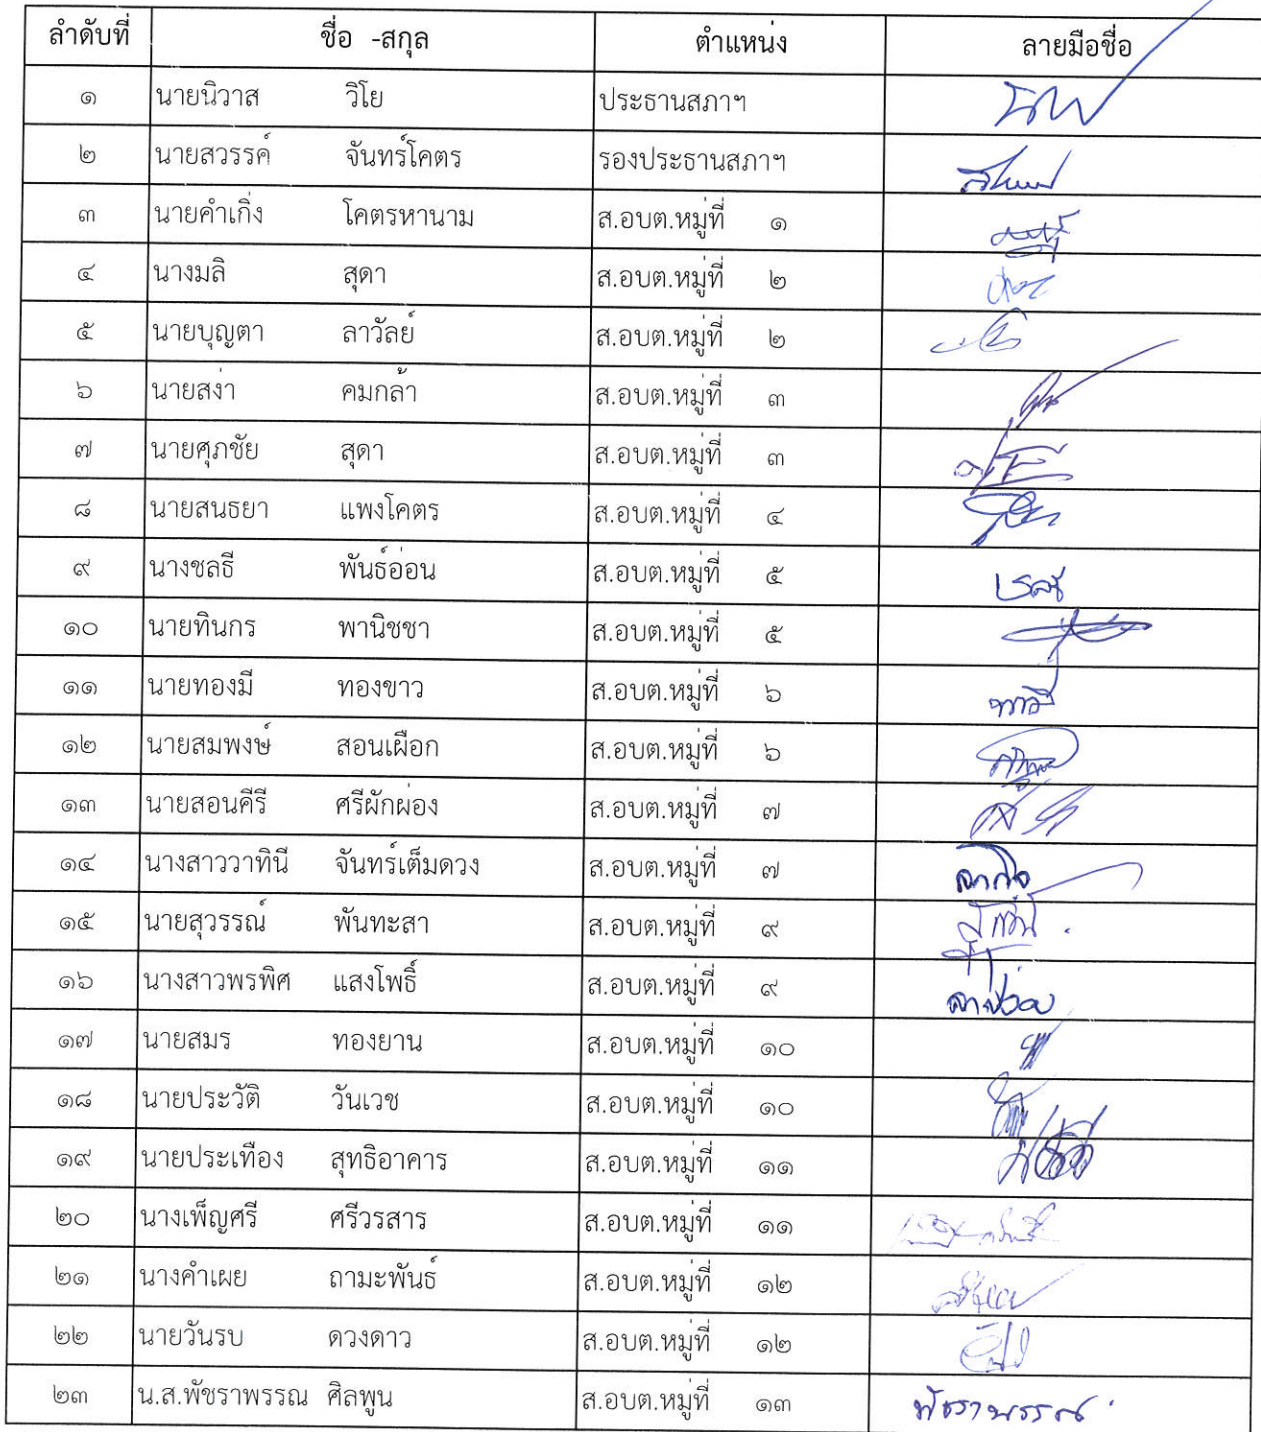 ลำดับที่ ชื่อ -สกุล ตำแหน่ง ลายมือชื่อ
๑ นายนิวาส วิโย ประธานสภาฯ
๒ นายสวรรค์ จันทร์โคตร รองประธานสภาฯ
๓ นายคำเกิ่ง โคตรหานาม ส.อบต.หมู่ที่ ๑
๔ นางมลิ สุดา ส.อบต.หมู่ที่ ๒
๕ นายบุญตา ลาวัลย์ ส.อบต.หมู่ที่ ๒
๖ นายสง่า คมกล้า ส.อบต.หมู่ที่ ๓
๗ นายศุภชัย สุดา ส.อบต.หมู่ที่ ๓
๘ นายสนธยา แพงโคตร ส.อบต.หมู่ที่ ๔
๙ นางชลธี พันธ์อ่อน ส.อบต.หมู่ที่ ๕
๑๐ นายทินกร พานิชชา ส.อบต.หมู่ที่ ๕
๑๑ นายทองมี ทองขาว ส.อบต.หมู่ที่ ๖
๑๒ นายสมพงษ์ สอนเผือก ส.อบต.หมู่ที่ ๖
๑๓ นายสอนคีรี ศรีผักผ่อง ส.อบต.หมู่ที่ ๗
๑๔ นางสาววาทินี จันทร์เต็มดวง ส.อบต.หมู่ที่ ๗
๑๕ นายสุวรรณ์ พันทะสา ส.อบต.หมู่ที่ ๙
๑๖ นางสาวพรพิศ แสงโพธิ์ ส.อบต.หมู่ที่ ๙
๑๗ นายสมร ทองยาน ส.อบต.หมู่ที่ ๑๐
๑๘ นายประวัติ วันเวช ส.อบต.หมู่ที่ ๑๐
๑๙ นายประเทือง สุทธิอาคาร ส.อบต.หมู่ที่ ๑๑
๒๐ นางเพ็ญศรี ศรีวรสาร ส.อบต.หมู่ที่ ๑๑
๒๑ นางคำเผย ถามะพันธ์ ส.อบต.หมู่ที่ ๑๒
๒๒ นายวันรบ ดวงดาว ส.อบต.หมู่ที่ ๑๒
๒๓ น.ส.พัชราพรรณ ศิลพูน ส.อบต.หมู่ที่ ๑๓ พัชราพรรณ